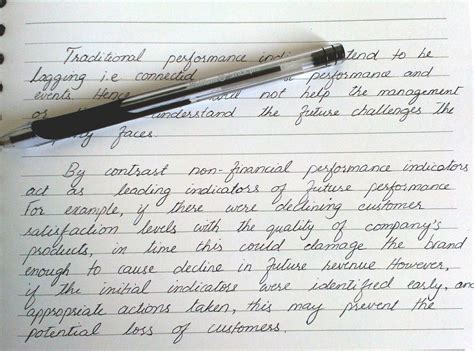 Traditional performance indi tend to be
lagging i.e connected performance and
events. Hence not help the management
or understand the future challenges the
faces.
By contrast non-financial performance indicators
act as leading indicators of future performance
For example, if there were declining customer
satisfaction levels with the quality of company's
products, in time this could damage the brand
enough to cause decline in future revenue However,
if the initial indicators were identified early, and
appropriate actions taken, this may prevent the
potential loss of customers.